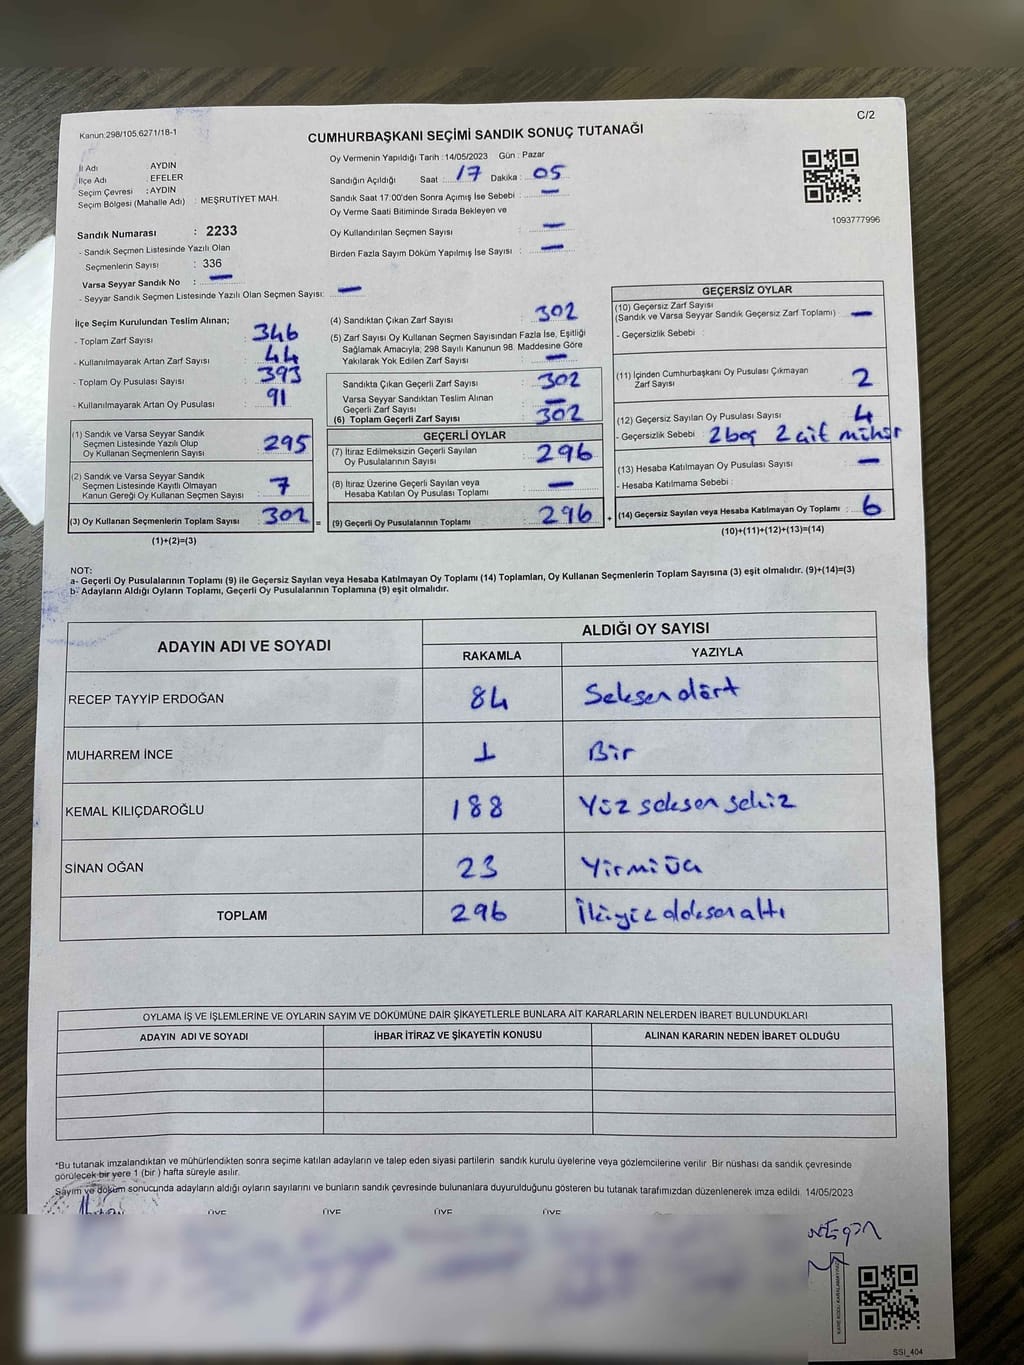 Kanun:298/105,6271/18-1
C/2
CUMHURBAŞKANI SEÇİMİ SANDIK SONUÇ TUTANAĞI
İl Adı : AYDIN
İlçe Adı : EFELER
Seçim Çevresi : AYDIN
Seçim Bölgesi (Mahalle Adı) : MEŞRUTİYET MAH.
Oy Vermenin Yapıldığı Tarih : 14/05/2023 Gün : Pazar
Sandığın Açıldığı Saat : 17 Dakika : 05
Sandık Saat 17:00'den Sonra Açımış İse Sebebi : —
Oy Verme Saati Bitiminde Sırada Bekleyen ve
Oy Kullandırılan Seçmen Sayısı : —
Birden Fazla Sayım Döküm Yapılmış İse Sayısı : —
1093777996
Sandık Numarası : 2233
- Sandık Seçmen Listesinde Yazılı Olan
Seçmenlerin Sayısı : 336
Varsa Seyyar Sandık No : —
- Seyyar Sandık Seçmen Listesinde Yazılı Olan Seçmen Sayısı: —
İlçe Seçim Kurulundan Teslim Alınan;
- Toplam Zarf Sayısı : 346
- Kullanılmayarak Artan Zarf Sayısı : 44
- Toplam Oy Pusulası Sayısı : 393
- Kullanılmayarak Artan Oy Pusulası : 91
(1) Sandık ve Varsa Seyyar Sandık
Seçmen Listesinde Yazılı Olup
Oy Kullanan Seçmenlerin Sayısı : 295
(2) Sandık ve Varsa Seyyar Sandık
Seçmen Listesinde Kayıtlı Olmayan
Kanun Gereği Oy Kullanan Seçmen Sayısı : 7
(3) Oy Kullanan Seçmenlerin Toplam Sayısı : 302 =
(1)+(2)=(3)
(4) Sandıktan Çıkan Zarf Sayısı : 302
(5) Zarf Sayısı Oy Kullanan Seçmen Sayısından Fazla İse, Eşitliği
Sağlamak Amacıyla; 298 Sayılı Kanunun 98. Maddesine Göre
Yakılarak Yok Edilen Zarf Sayısı : —
Sandıkta Çıkan Geçerli Zarf Sayısı : 302
Varsa Seyyar Sandıktan Teslim Alınan
Geçerli Zarf Sayısı : —
(6) Toplam Geçerli Zarf Sayısı : 302
GEÇERLİ OYLAR
(7) İtiraz Edilmeksizin Geçerli Sayılan
Oy Pusulalarının Sayısı : 296
(8) İtiraz Üzerine Geçerli Sayılan veya
Hesaba Katılan Oy Pusulası Toplamı : —
(9) Geçerli Oy Pusulalarının Toplamı : 296 +
GEÇERSİZ OYLAR
(10) Geçersiz Zarf Sayısı
(Sandık ve Varsa Seyyar Sandık Geçersiz Zarf Toplamı) : —
- Geçersizlik Sebebi :
(11) İçinden Cumhurbaşkanı Oy Pusulası Çıkmayan
Zarf Sayısı : 2
(12) Geçersiz Sayılan Oy Pusulası Sayısı : 4
- Geçersizlik Sebebi : 2 boş 2 çift mühür
(13) Hesaba Katılmayan Oy Pusulası Sayısı : —
- Hesaba Katılmama Sebebi :
(14) Geçersiz Sayılan veya Hesaba Katılmayan Oy Toplamı : 6
(10)+(11)+(12)+(13)=(14)
NOT:
a- Geçerli Oy Pusulalarının Toplamı (9) ile Geçersiz Sayılan veya Hesaba Katılmayan Oy Toplamı (14) Toplamları, Oy Kullanan Seçmenlerin Toplam Sayısına (3) eşit olmalıdır. (9)+(14)=(3)
b- Adayların Aldığı Oyların Toplamı, Geçerli Oy Pusulalarının Toplamına (9) eşit olmalıdır.
ADAYIN ADI VE SOYADI
ALDIĞI OY SAYISI
RAKAMLA YAZIYLA
RECEP TAYYİP ERDOĞAN 84 Seksendört
MUHARREM İNCE 1 Bir
KEMAL KILIÇDAROĞLU 188 Yüzseksensekiz
SİNAN OĞAN 23 Yirmiüç
TOPLAM 296 İkiyüzdoksanaltı
OYLAMA İŞ VE İŞLEMLERİNE VE OYLARIN SAYIM VE DÖKÜMÜNE DAİR ŞİKAYETLERLE BUNLARA AİT KARARLARIN NELERDEN İBARET BULUNDUKLARI
ADAYIN ADI VE SOYADI İHBAR İTİRAZ VE ŞİKAYETİN KONUSU ALINAN KARARIN NEDEN İBARET OLDUĞU
*Bu tutanak imzalandıktan ve mühürlendikten sonra seçime katılan adayların ve talep eden siyasi partilerin sandık kurulu üyelerine veya gözlemcilerine verilir. Bir nüshası da sandık çevresinde
görülecek bir yere 1 (bir) hafta süreyle asılır.
Sayım ve döküm sonucunda adayların aldığı oyların sayılarını ve bunların sandık çevresinde bulunanlara duyurulduğunu gösteren bu tutanak tarafımızdan düzenlenerek imza edildi. 14/05/2023
ÜYE ÜYE ÜYE ÜYE
SSI_404